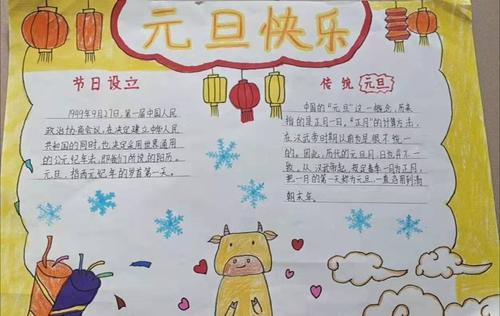 元旦快乐
节日设立
1949年9月27日,第一届中国人民
政治协商会议,在决定建立中华人民
共和国的同时,也决定采用世界通用
的公元纪年法,即我们所说的阳历。
元旦,指公元纪年的岁首第一天。
传统元旦
中国的“元旦”这一概念,历来
指的是正月一日。“正月”的计算方法,
在汉武帝时期以前也是很不统一
的。因此,历代的元旦月、日也并不一
致。从汉武帝起,规定春年一月为正月,
把一月的第一天称为元旦,一直沿用到清
朝末年。